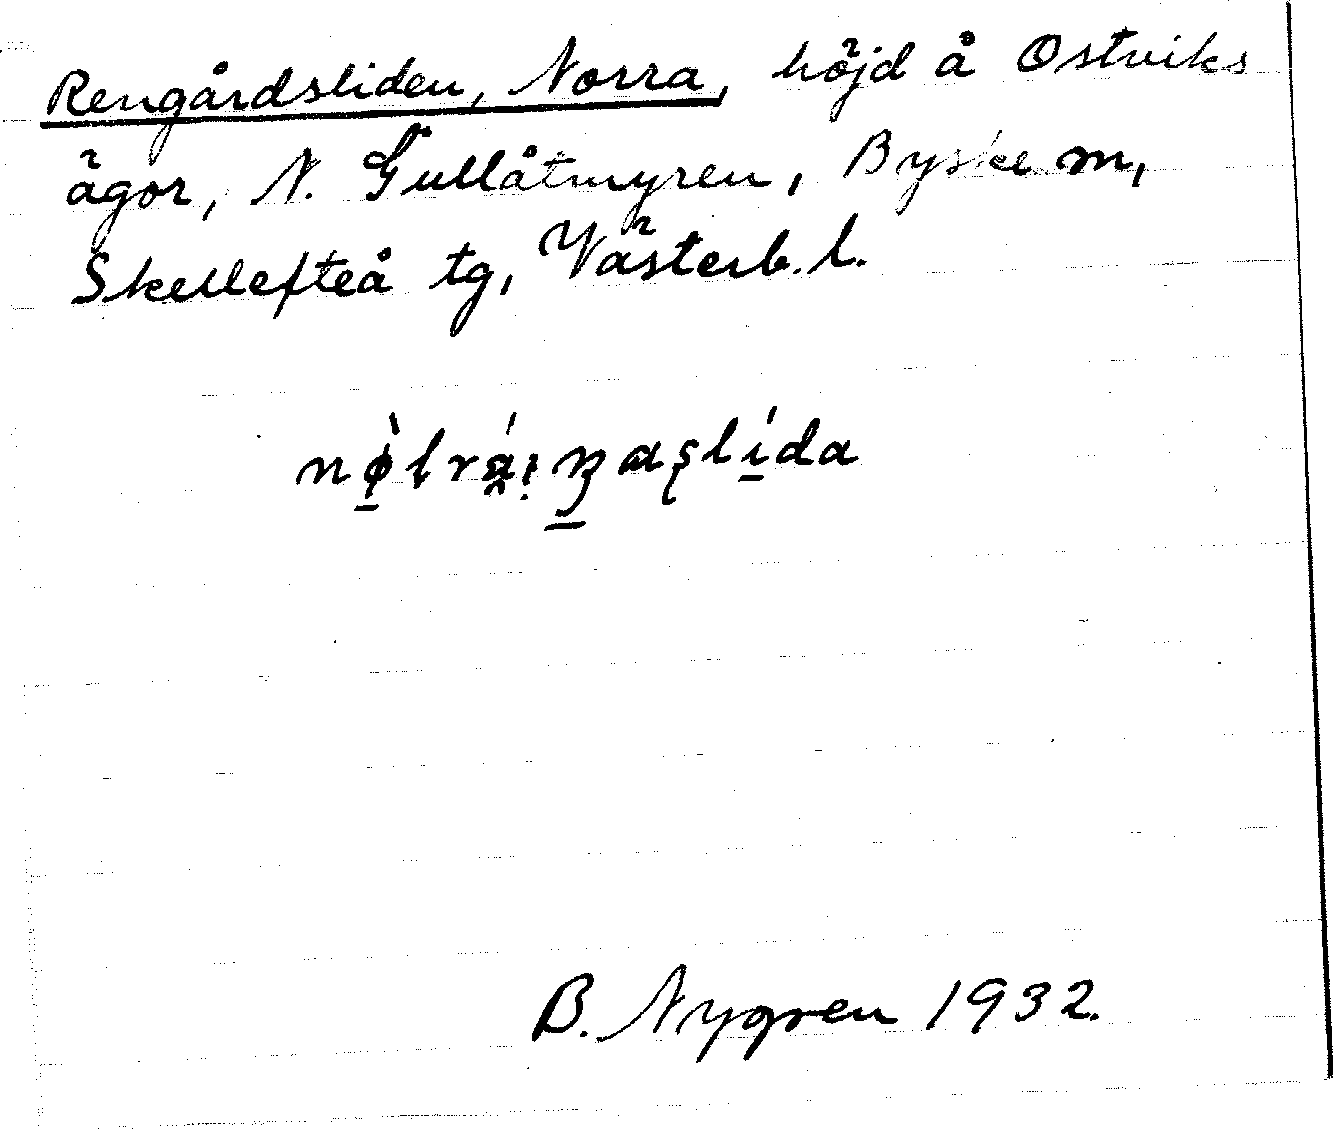 Rengårdsliden, Norra, höjd å Ostviks
ägor, N. Gullåtmyren, Byske m,
Skellefteå tg, Västerb. l.
B. Nygren 1932.